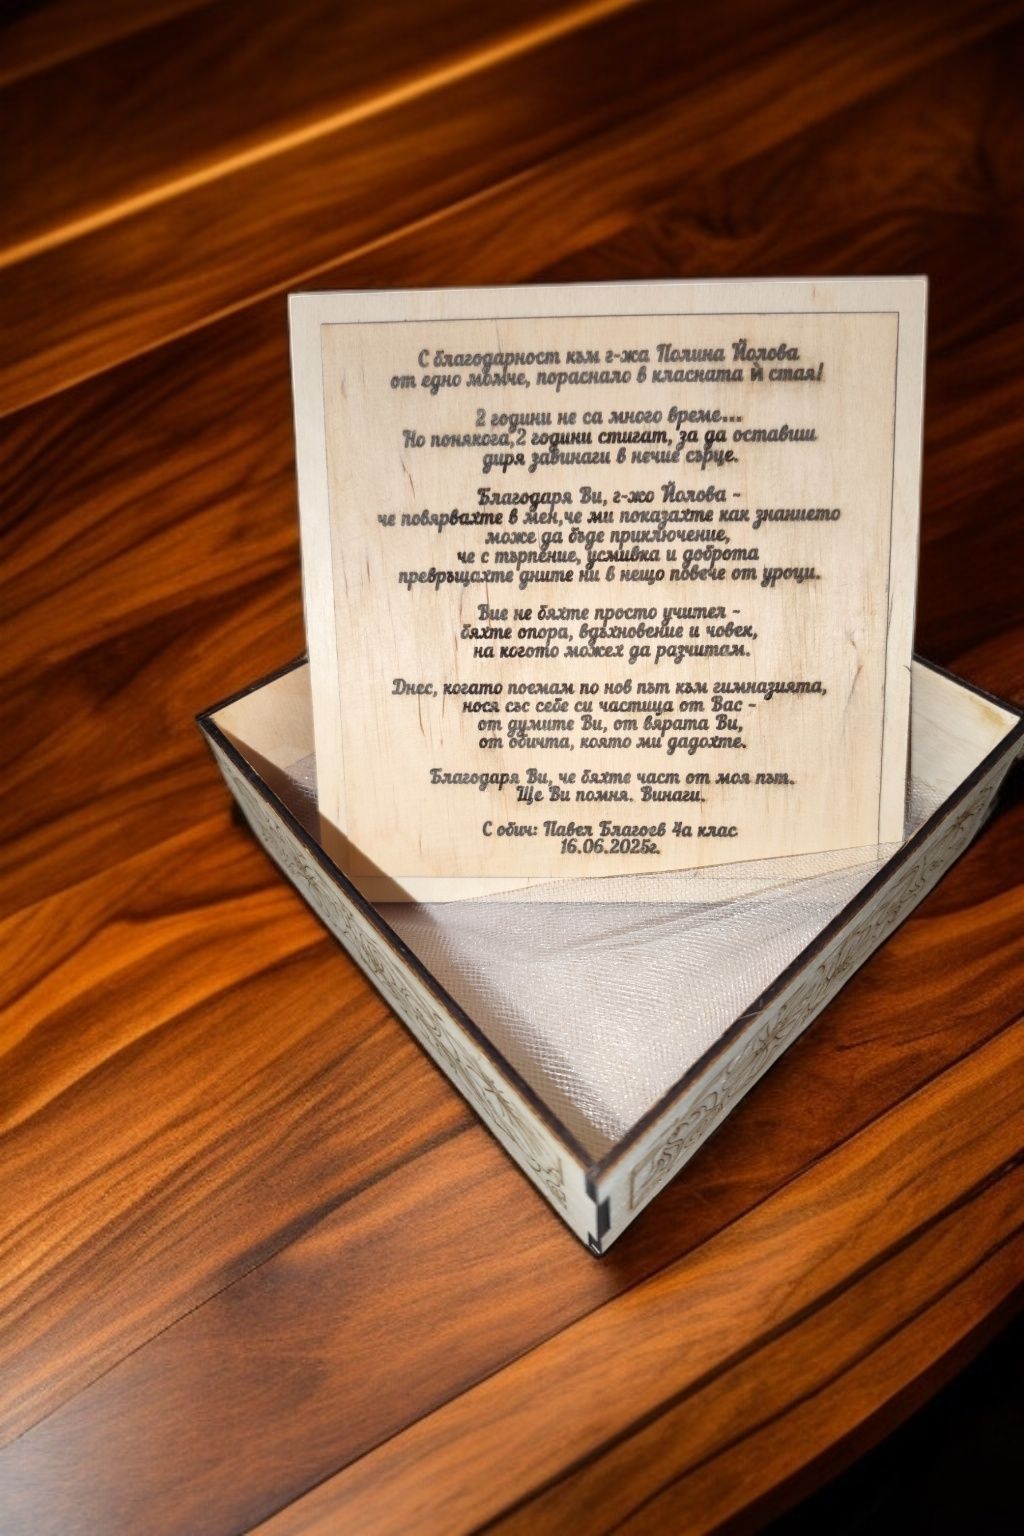 С благодарност към г-жа Полина Йолова
от едно момче, пораснало в класната ѝ стая!
2 години не са много време...
Но понякога,2 години стигат, за да оставиш
диря завинаги в нечие сърце.
Благодаря Ви, г-жо Йолова -
че повярвахте в мен,че ми показахте как знанието
може да бъде приключение,
че с търпение, усмивка и доброта
превръщахте дните ни в нещо повече от уроци.
Вие не бяхте просто учител -
бяхте опора, вдъхновение и човек,
на когото можех да разчитам.
Днес, когато поемам по нов път към гимназията,
нося със себе си частица от Вас -
от думите Ви, от вярата Ви,
от обичта, която ми дадохте.
Благодаря Ви, че бяхте част от моя път.
Ще Ви помня. Винаги.
С обич: Павел Благоев 4а клас
16.06.2025г.